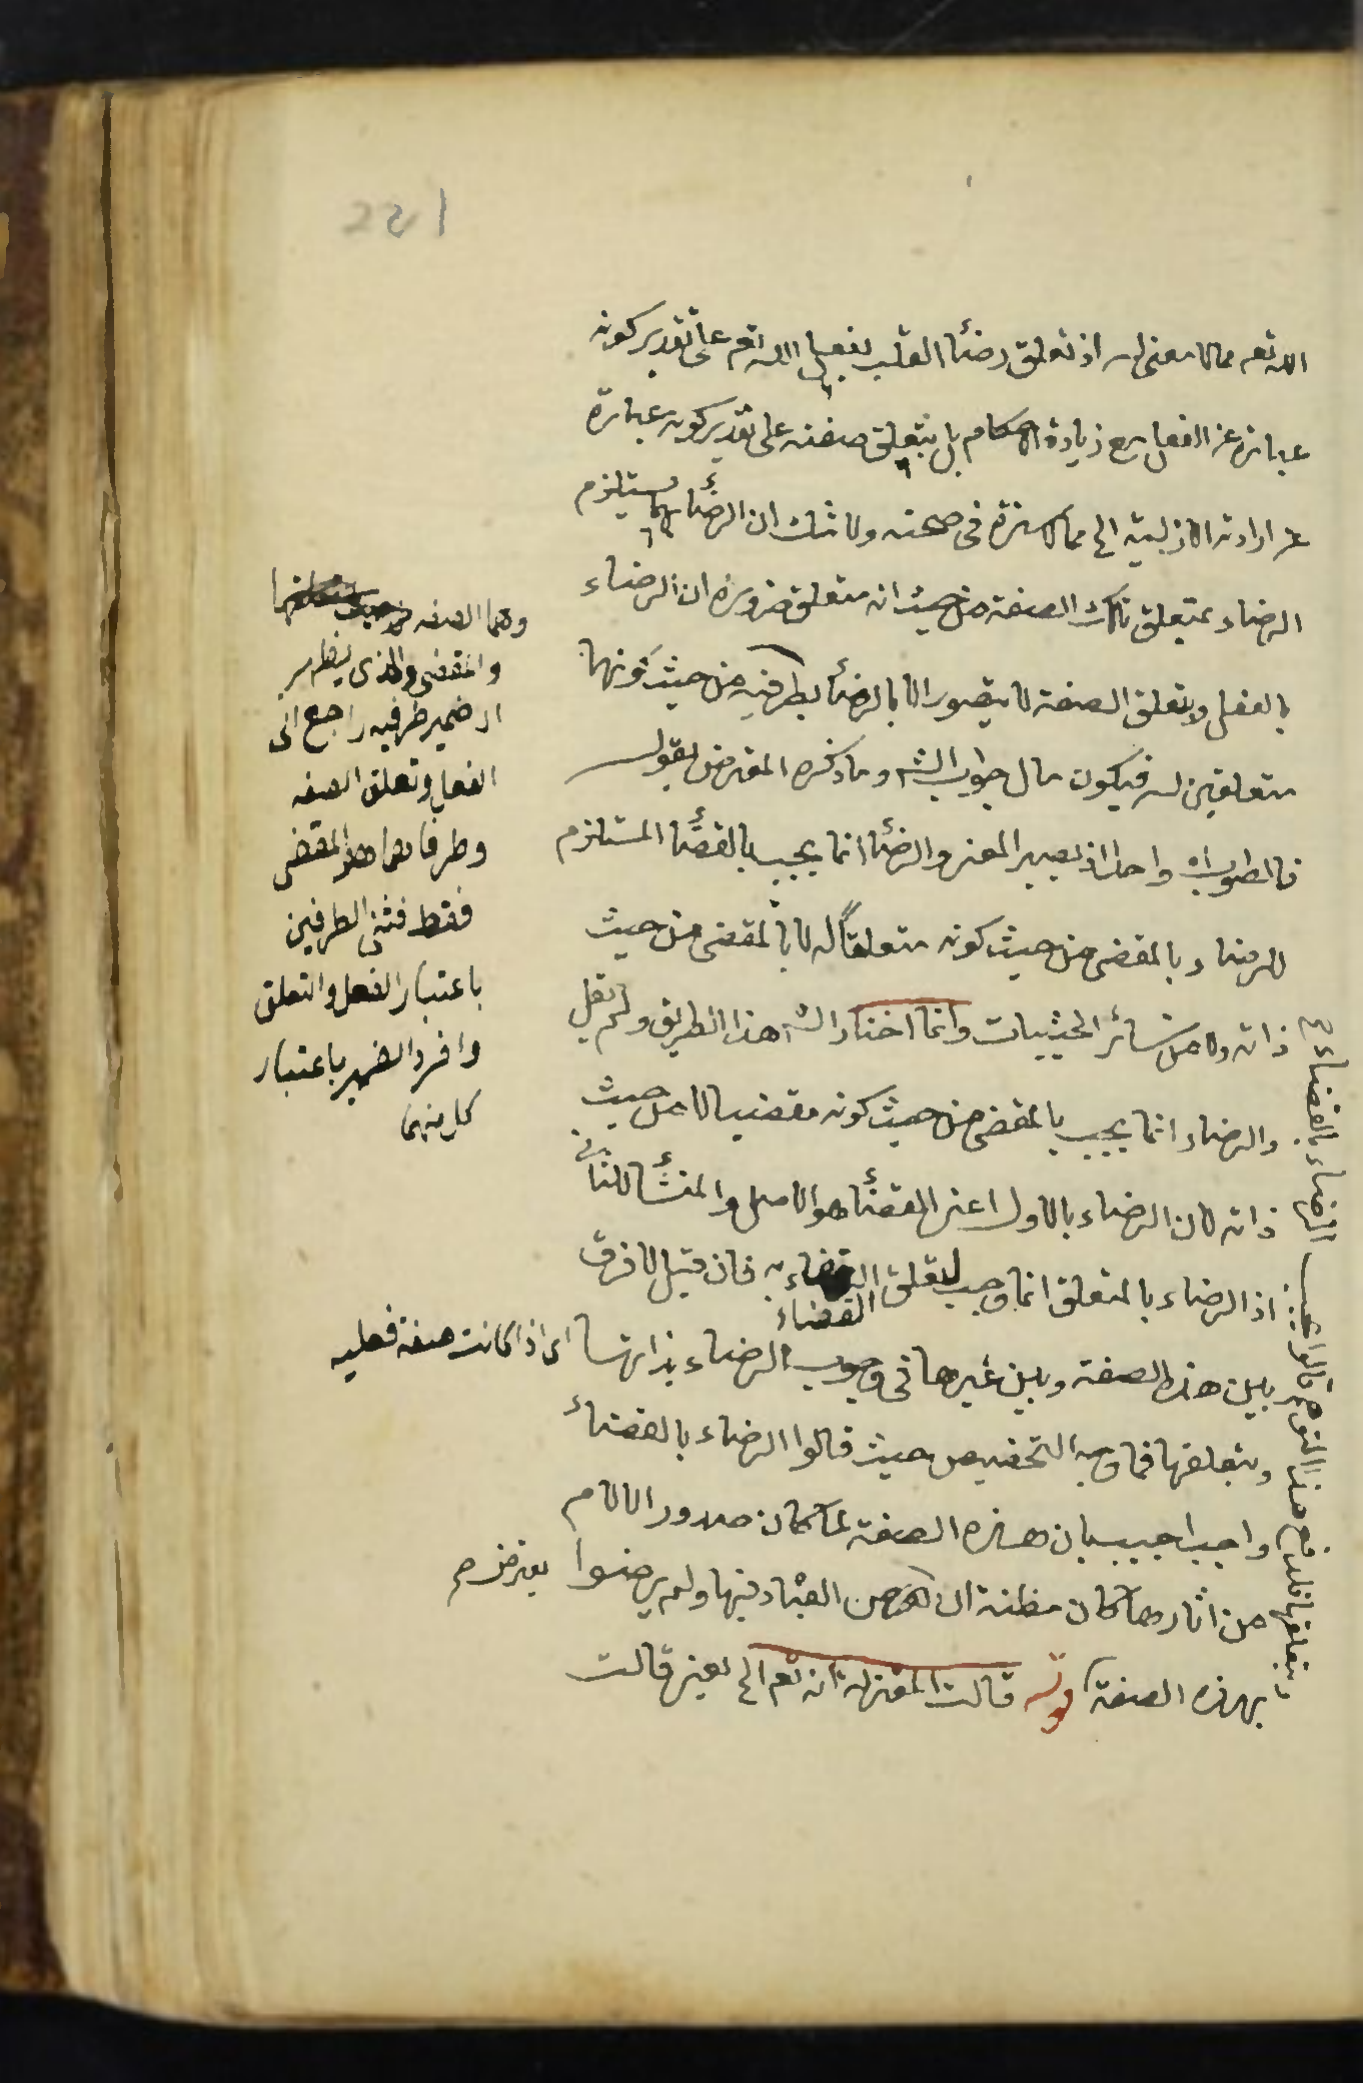 221
الله تعم مما لا معنى له اذ تعلق رضئا القلب بفعل الله تعم على تقدير كونه
عبارة عن الفعل مع زيادة الاحكام بل بتعلق صفته على تقدير كونه عبارة
عن ارادته الازلية الى مما لا سترة فى صحته ولا شك ان الرضئا بهما يستلزم
الرضاء بمتعلق تلك الصفة من حيث انه متعلق ضرورة ان الرضاء
بالفعل وبتعلق الصفة لا يتصور الا بالرضئا بطرفيه من حيث كونهما
متعلقين له فيكون مال جواب الش وما ذكره المعترض بقوله
فالصواب واحدا اذ يصير المعنى والرضئا انما يجب بالقضئا المستلزم
للرضاء بالمقضى من حيث كونه متعلقاً له لا بالمقضى من حيث
ذاته ولا من سائر الحيثيات وانما اختار الش هذا الطريق ولم يقل
والرضاء انما يجب بالمقضى من حيث كونه مقضيا لا من حيث
ذاته لان الرضاء بالاول اعنى القضئا هو الاصل والمنشأ للثانى
اذ الرضاء بالمتعلق انما وجب لتعلق القضاء به فان قيل لا فرق
القضاء
بين هذه الصفة وبين غيرها فى وجوب الرضاء بذاتها
وبتعلقها فما وجه التخصيص حيث قالوا الرضاء بالقضاء
واجب اجيب بان هذه الصفة لما كان صدور الالام
من اثارها كان مظنة ان العباد فيها ولم يرضوا
بهذه الصفة قوله قالت المعتزلة انه تعم الى يعنى قالت
وهما الصفه
والمقضى والذى يظهر
ان ضمير طرفيه راجع الى
الفعل وتعلق الصفه
وطرفاهما هو المقضى
فقط فثنى الطرفين
باعتبار الفعل والتعلق
وافرد الضمير باعتبار
كل منهما
اى اذا كانت صفة فعليه
يعترض
وبتعلقها فلدفع هذا التوهم قالوا يجب الرضاء بالقضاء